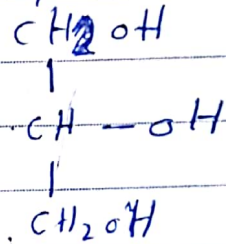 CH2OH
|
CH-OH
|
CH2OH